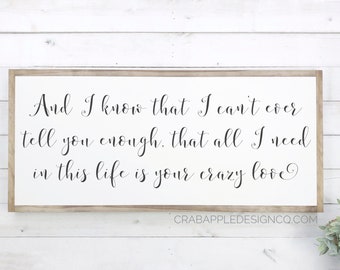 And I know that I can't ever
tell you enough, that all I need
in this life is your crazy love
CRABAPPLEDESIGNCO.COM